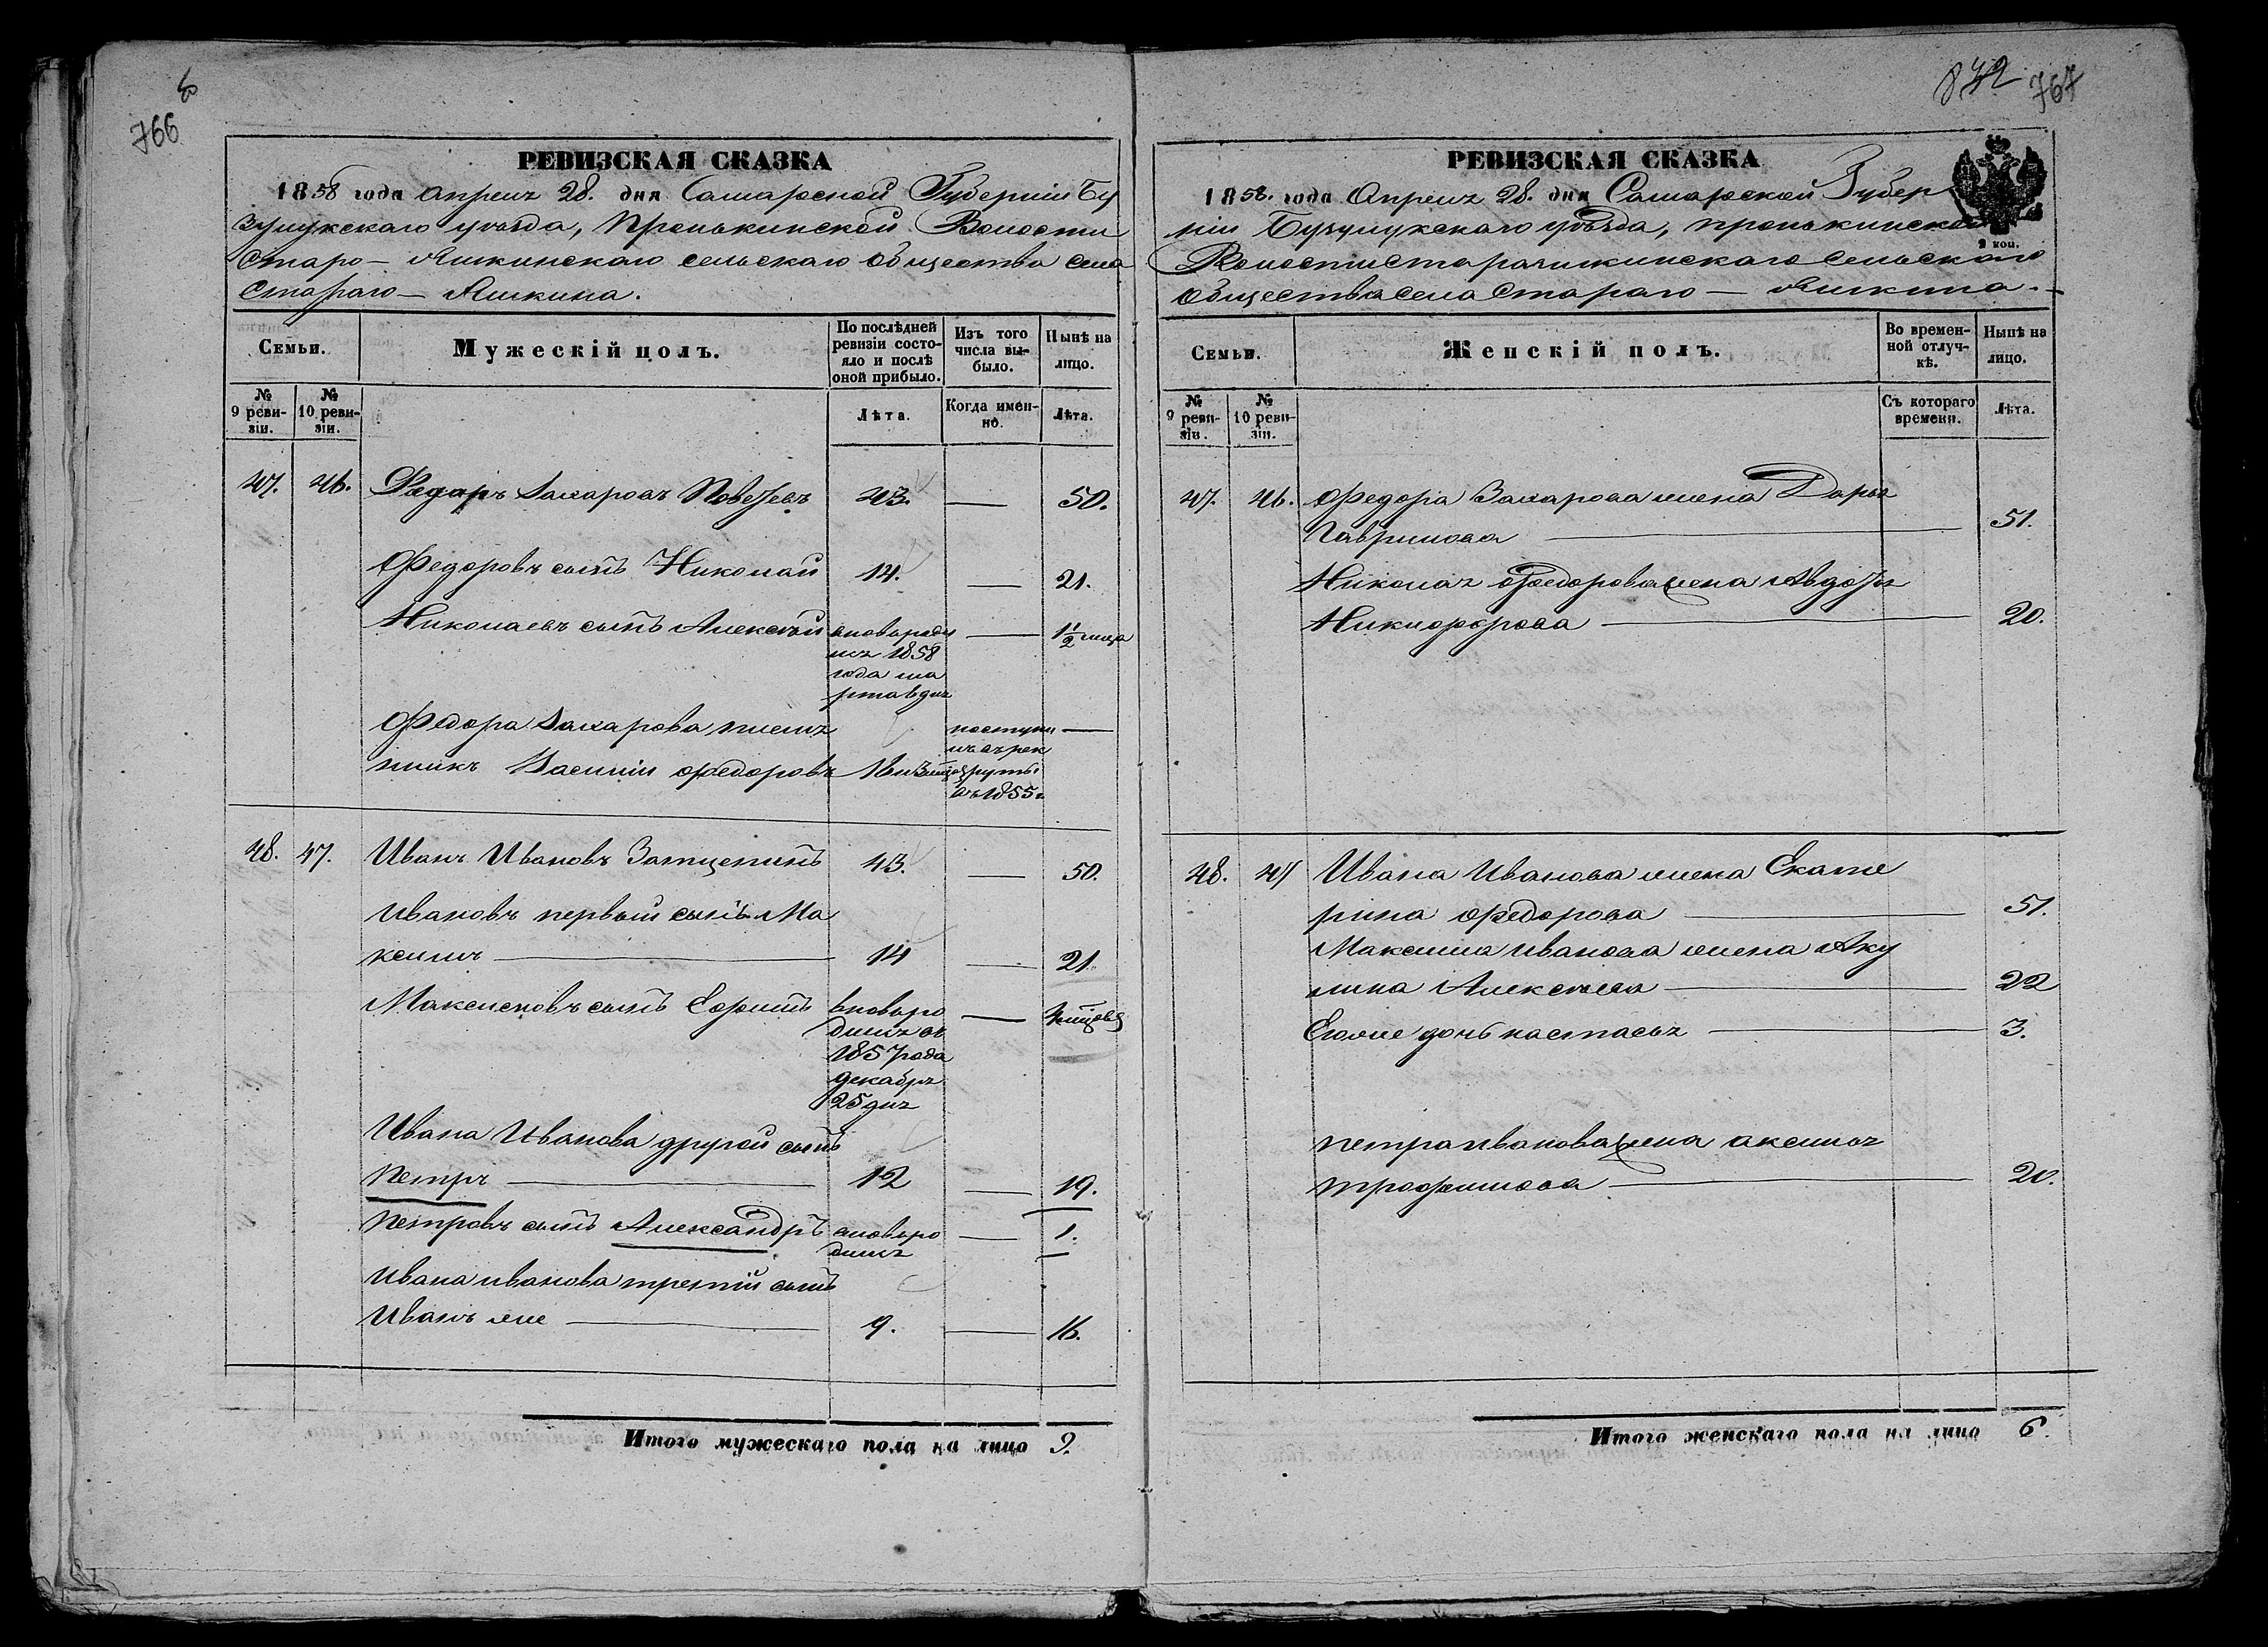 766
832 767
РЕВИЗСКАЯ СКАЗКА
1858 года Апреля 28. дня Самарской Губерніи Бу
зулукскаго уѣзда, Пронькинской Волости
Старо-Яшкинскаго сельскаго общества села
Стараго-Яшкина.
Семьи.
Мужескій полъ.
По послѣдней ревизіи состояло и послѣ оной прибыло.
Изъ того числа выбыло.
Нынѣ на лицо.
№ 9 ревизіи.
№ 10 ревизіи.
Лѣта.
Когда именно.
Лѣта.
47. 46. Федоръ Захаровъ 43. — 50.
Федоровъ сынъ Николай 14. — 21.
Николаевъ сынъ Алексѣй вновьроди — 1 1/2 мца
лся 1858
года ма
рта в дня
Федора Захарова племя поступи —
нникъ Василій Федоровъ 16 лъ въ рек
руты
въ 1855 г
48. 47. Иванъ Ивановъ Защепинъ 43. — 50.
Ивановъ первый сынъ Ма
ксимъ — 14 — 21.
Максимовъ сынъ Ефимъ вновьро —
дился въ
1857 года
декабря
25 дня
Ивана Иванова другой сынъ
Петръ — 12 — 19.
Петровъ сынъ Александръ вновьро — 1.
дился
Ивана Иванова третій сынъ
Иванъ же — 9. — 16.
Итого мужескаго пола на лицо 9.
РЕВИЗСКАЯ СКАЗКА
1858. года Апреля 28. дня Самарской Губер
ніи Бузулукскаго уѣзда, Пронькинской
2 коп.
Волости Стараяшкинскаго сельскаго
общества села Стараго — Яшкина.—
Семьи.
Женскій полъ.
Во временной отлучкѣ.
Нынѣ на лицо.
№ 9 ревизіи.
№ 10 ревизіи.
Съ котораго времени.
Лѣта.
47. 46. Федора Захарова жена Дарья
Гаврилова — 51.
Николая Федорова жена Авдотья
Никифорова — 20.
48. 47 Ивана Иванова жена Екате
рина Федорова — 51.
Максима Иванова жена Аку
лина Алексѣева — 22
Еюже дочь Настасья — 3.
Петра Иванова жена Аксинья
Трофимова — 20.
Итого женскаго пола на лицо 6.